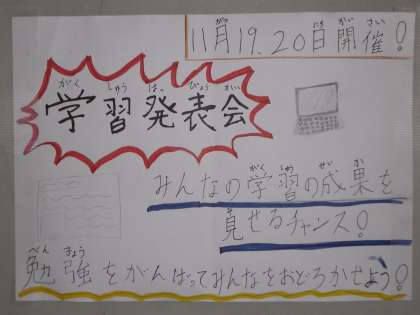 11月19.20日開催!
学習発表会
みんなの学習の成果を
見せるチャンス!
勉強をがんばってみんなをおどろかせよう!